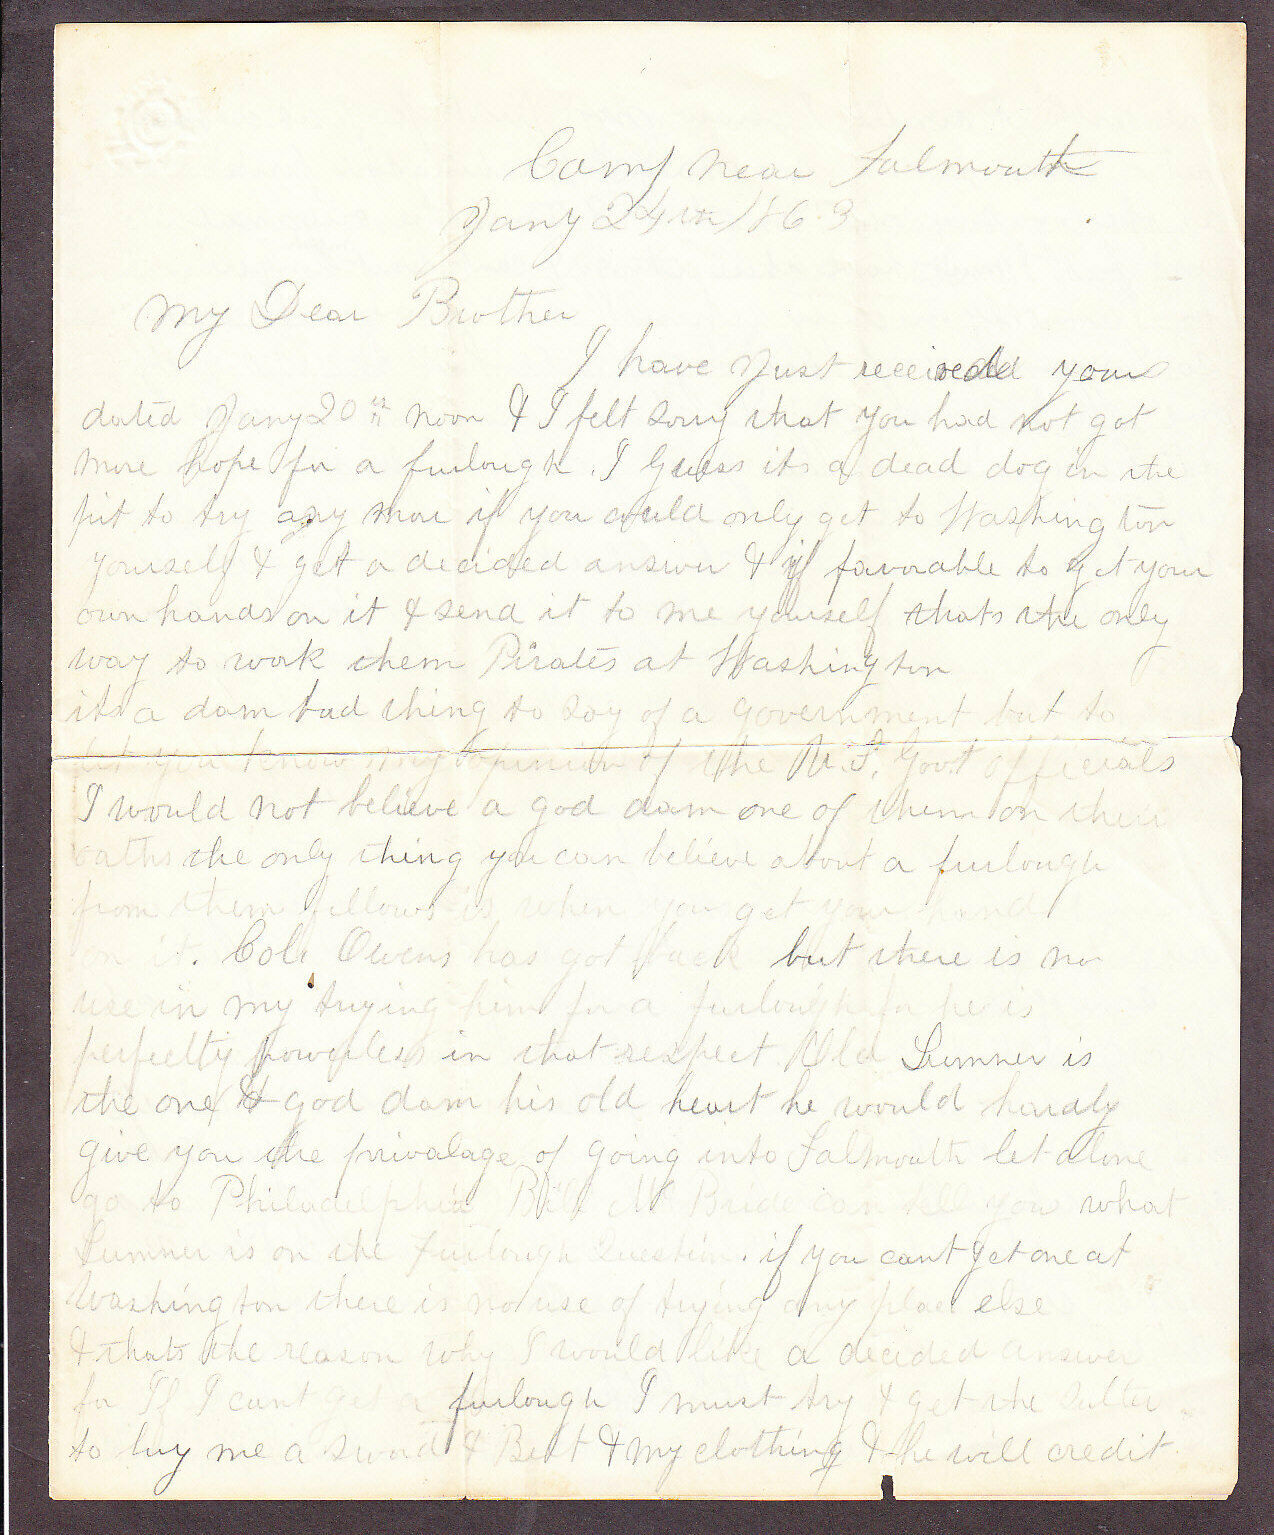 Camp near Falmouth
Jany 24th 1863
My Dear Brother
I have Just received yours
dated Jany 20th noon & I felt sorry that you had not got
more hope for a furlough. I Guess its a dead dog in the
pit to try any more if you could only get to Washington
yourself & get a decided answer & if favorable to get your
own hands on it & send it to me yourself thats the only
way to work them Pirates at Washington
its a dam bad thing to say of a government but to
let you know my opinion of the U.S. Govt officials
I would not believe a god dam one of them on their
oaths the only thing you can believe about a furlough
from them fellows is when you get your hand
on it. Col. Owens has got back but there is no
use in my trying him for a furlough for he is
perfectly powerless in that respect. Old Sumner is
the one & god dam his old heart he would hardly
give you the privalage of going into Falmouth let alone
go to Philadelphia Bill McBride can tell you what
Sumner is on the Furlough Question. if you cant get one at
Washington there is no use of trying any place else
& thats the reason why I would like a decided answer
for If I cant get a furlough I must try & get the Sutler
to buy me a sword & Belt & my clothing & he will credit